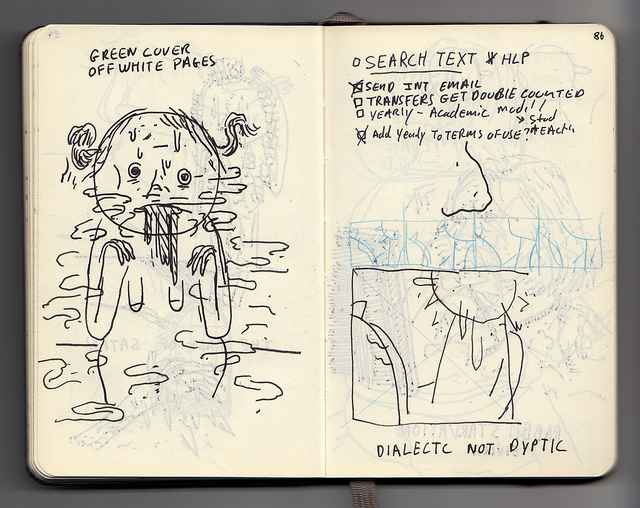 GREEN COVER
OFF WHITE PAGES
86
SEARCH TEXT * HLP
SEND INT EMAIL
TRANSFERS GET DOUBLE COUNTED
YEARLY - Academic
Stud
Add Yearly To TERMS OF USE?
DIALECTC NOT DYPTIC